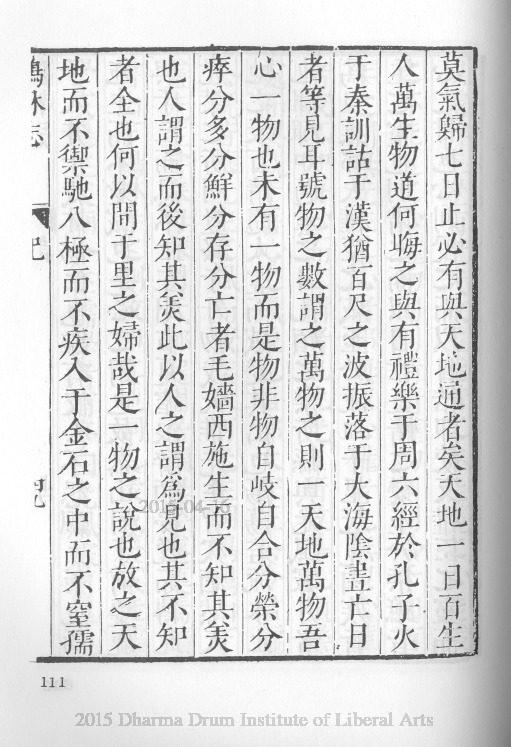 莫氣歸七日止必有與天地通者矣天地一日百生
人萬生物道何晦之與有禮樂于周六經於孔子火
于秦訓詁于漢猶百尺之波振落于大海陰晝亡日
者等見耳號物之數謂之萬物之則一天地萬物吾
心一物也未有一物而是物非物自岐自合分榮分
瘁分多分鮮分存分亡者毛嬙西施生而不知其美
也人謂之而後知其美此以人之謂為見也其不知
者全也何以問于里之婦哉是一物之說也放之天
地而不禦馳八極而不疾入于金石之中而不窒孺
志
111
2015-04-16
2015 Dharma Drum Institute of Liberal Arts